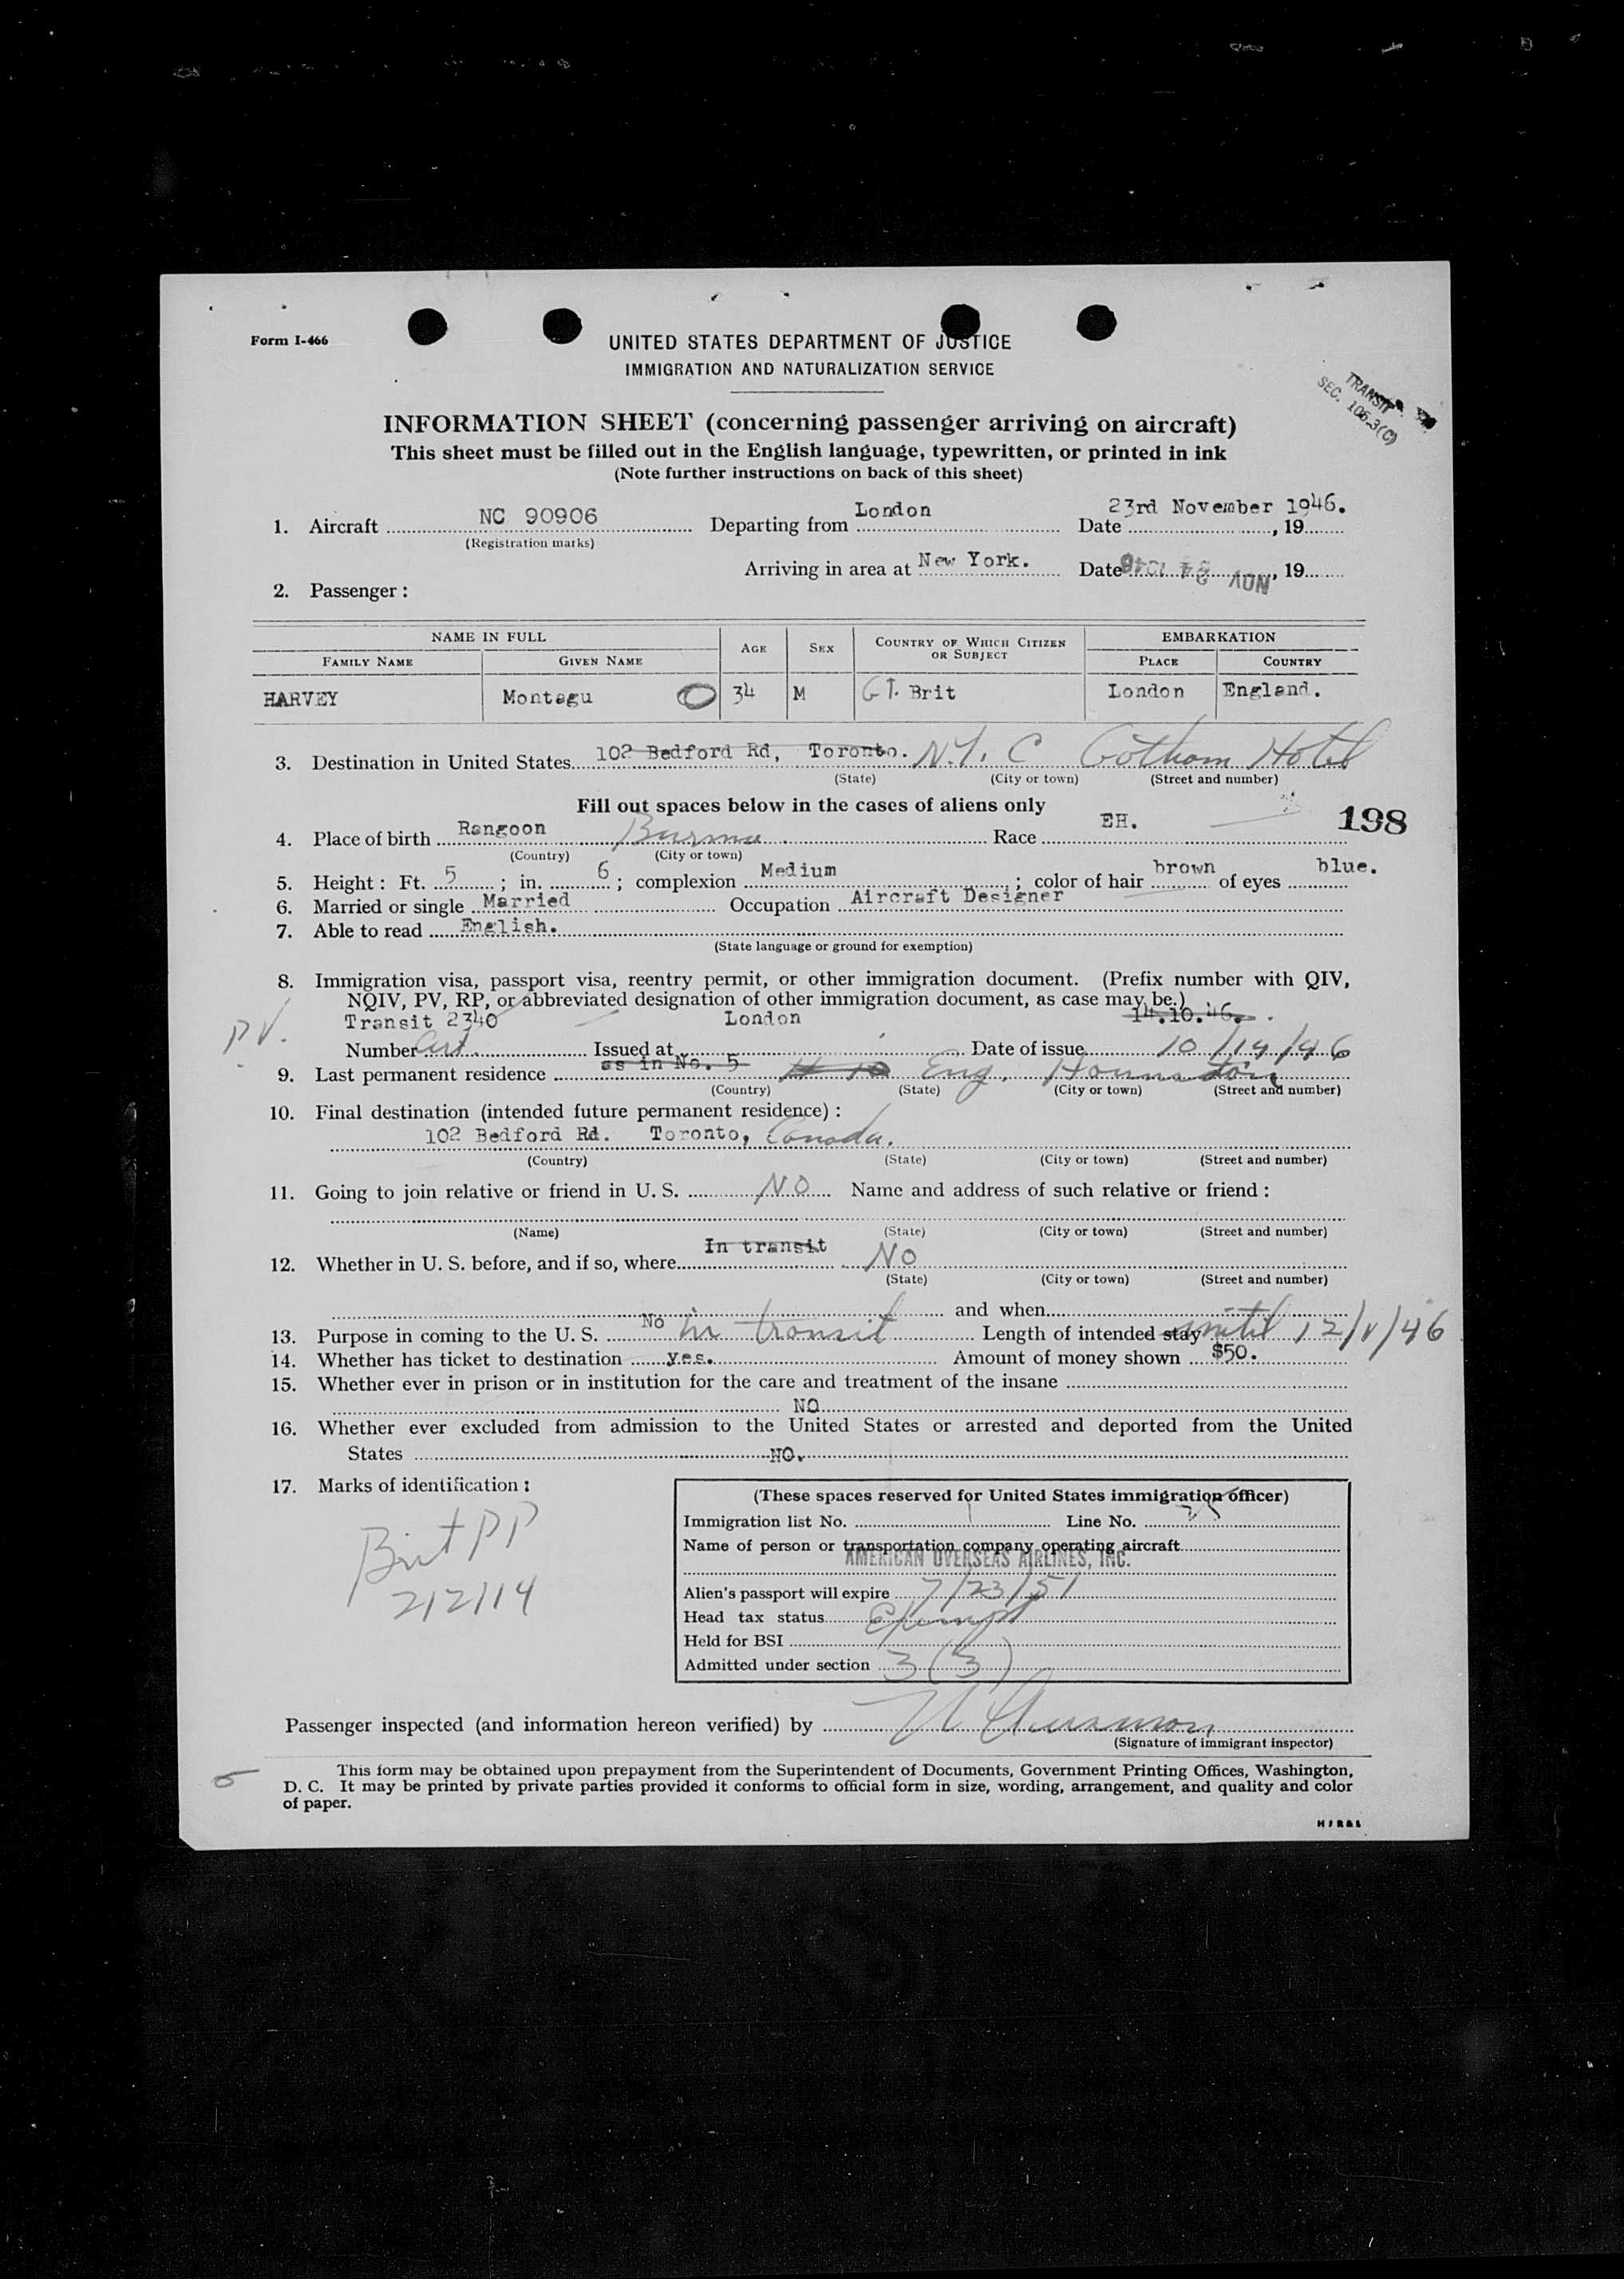 Form I-466
UNITED STATES DEPARTMENT OF JUSTICE
IMMIGRATION AND NATURALIZATION SERVICE
TRANSIT
SEC. 106.3(C)
INFORMATION SHEET (concerning passenger arriving on aircraft)
This sheet must be filled out in the English language, typewritten, or printed in ink
(Note further instructions on back of this sheet)
1. Aircraft NC 90906 Departing from London Date 23rd November 1946. , 19
(Registration marks)
Arriving in area at New York. Date NOV 24 1946 , 19
2. Passenger :
NAME IN FULL AGE SEX COUNTRY OF WHICH CITIZEN OR SUBJECT EMBARKATION
FAMILY NAME GIVEN NAME PLACE COUNTRY
HARVEY Montagu 34 M GT. Brit London England.
3. Destination in United States 102 Bedford Rd, Toronto. N.Y. C Gotham Hotel
(State) (City or town) (Street and number)
Fill out spaces below in the cases of aliens only
198
4. Place of birth Rangoon Burma Race EH.
(Country) (City or town)
5. Height : Ft. 5 ; in. 6 ; complexion Medium ; color of hair brown of eyes blue.
6. Married or single Married Occupation Aircraft Designer
7. Able to read English.
(State language or ground for exemption)
8. Immigration visa, passport visa, reentry permit, or other immigration document. (Prefix number with QIV,
NQIV, PV, RP, or abbreviated designation of other immigration document, as case may be.)
Transit 2340 London 14.10.46.
PV.
Number Issued at Date of issue 10/14/46
9. Last permanent residence as in No. 5 Eng.
(Country) (State) (City or town) (Street and number)
10. Final destination (intended future permanent residence) :
102 Bedford Rd. Toronto, Canada.
(Country) (State) (City or town) (Street and number)
11. Going to join relative or friend in U. S. NO Name and address of such relative or friend :
(Name) (State) (City or town) (Street and number)
12. Whether in U. S. before, and if so, where In transit NO
(State) (City or town) (Street and number)
and when
13. Purpose in coming to the U. S. No in transit Length of intended stay until 12/1/46
14. Whether has ticket to destination yes. Amount of money shown $50.
15. Whether ever in prison or in institution for the care and treatment of the insane
NO
16. Whether ever excluded from admission to the United States or arrested and deported from the United
States NO.
17. Marks of identification :
Brit PP
212114
(These spaces reserved for United States immigration officer)
Immigration list No. 1 Line No.
Name of person or transportation company operating aircraft
AMERICAN OVERSEAS AIRLINES, INC.
Alien's passport will expire 7/23/51
Head tax status Exempt
Held for BSI
Admitted under section 3(3)
Passenger inspected (and information hereon verified) by
(Signature of immigrant inspector)
This form may be obtained upon prepayment from the Superintendent of Documents, Government Printing Offices, Washington,
D. C. It may be printed by private parties provided it conforms to official form in size, wording, arrangement, and quality and color
of paper.